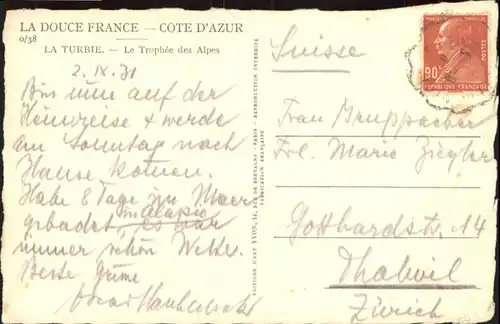 LA DOUCE FRANCE — COTE D'AZUR
0/38
LA TURBIE. — Le Trophée des Alpes
2. IX. 31
Bin nun auf der
Heimreise & werde
am Sonntag nach
Hause kommen.
Habe 8 Tage im Meer
gebadet, es war
immer schön Wetter.
Beste Grüsse
Oscar
ÉDITIONS D'ART YVON, 15, RUE DE BRETAGNE - PARIS - REPRODUCTION INTERDITE
FABRICATION FRANÇAISE
Suisse
90
POSTES
RÉPUBLIQUE FRANÇAISE
Frau
Frl. Marie Ziegler
Gotthardstr. 14
Thalwil
Zürich